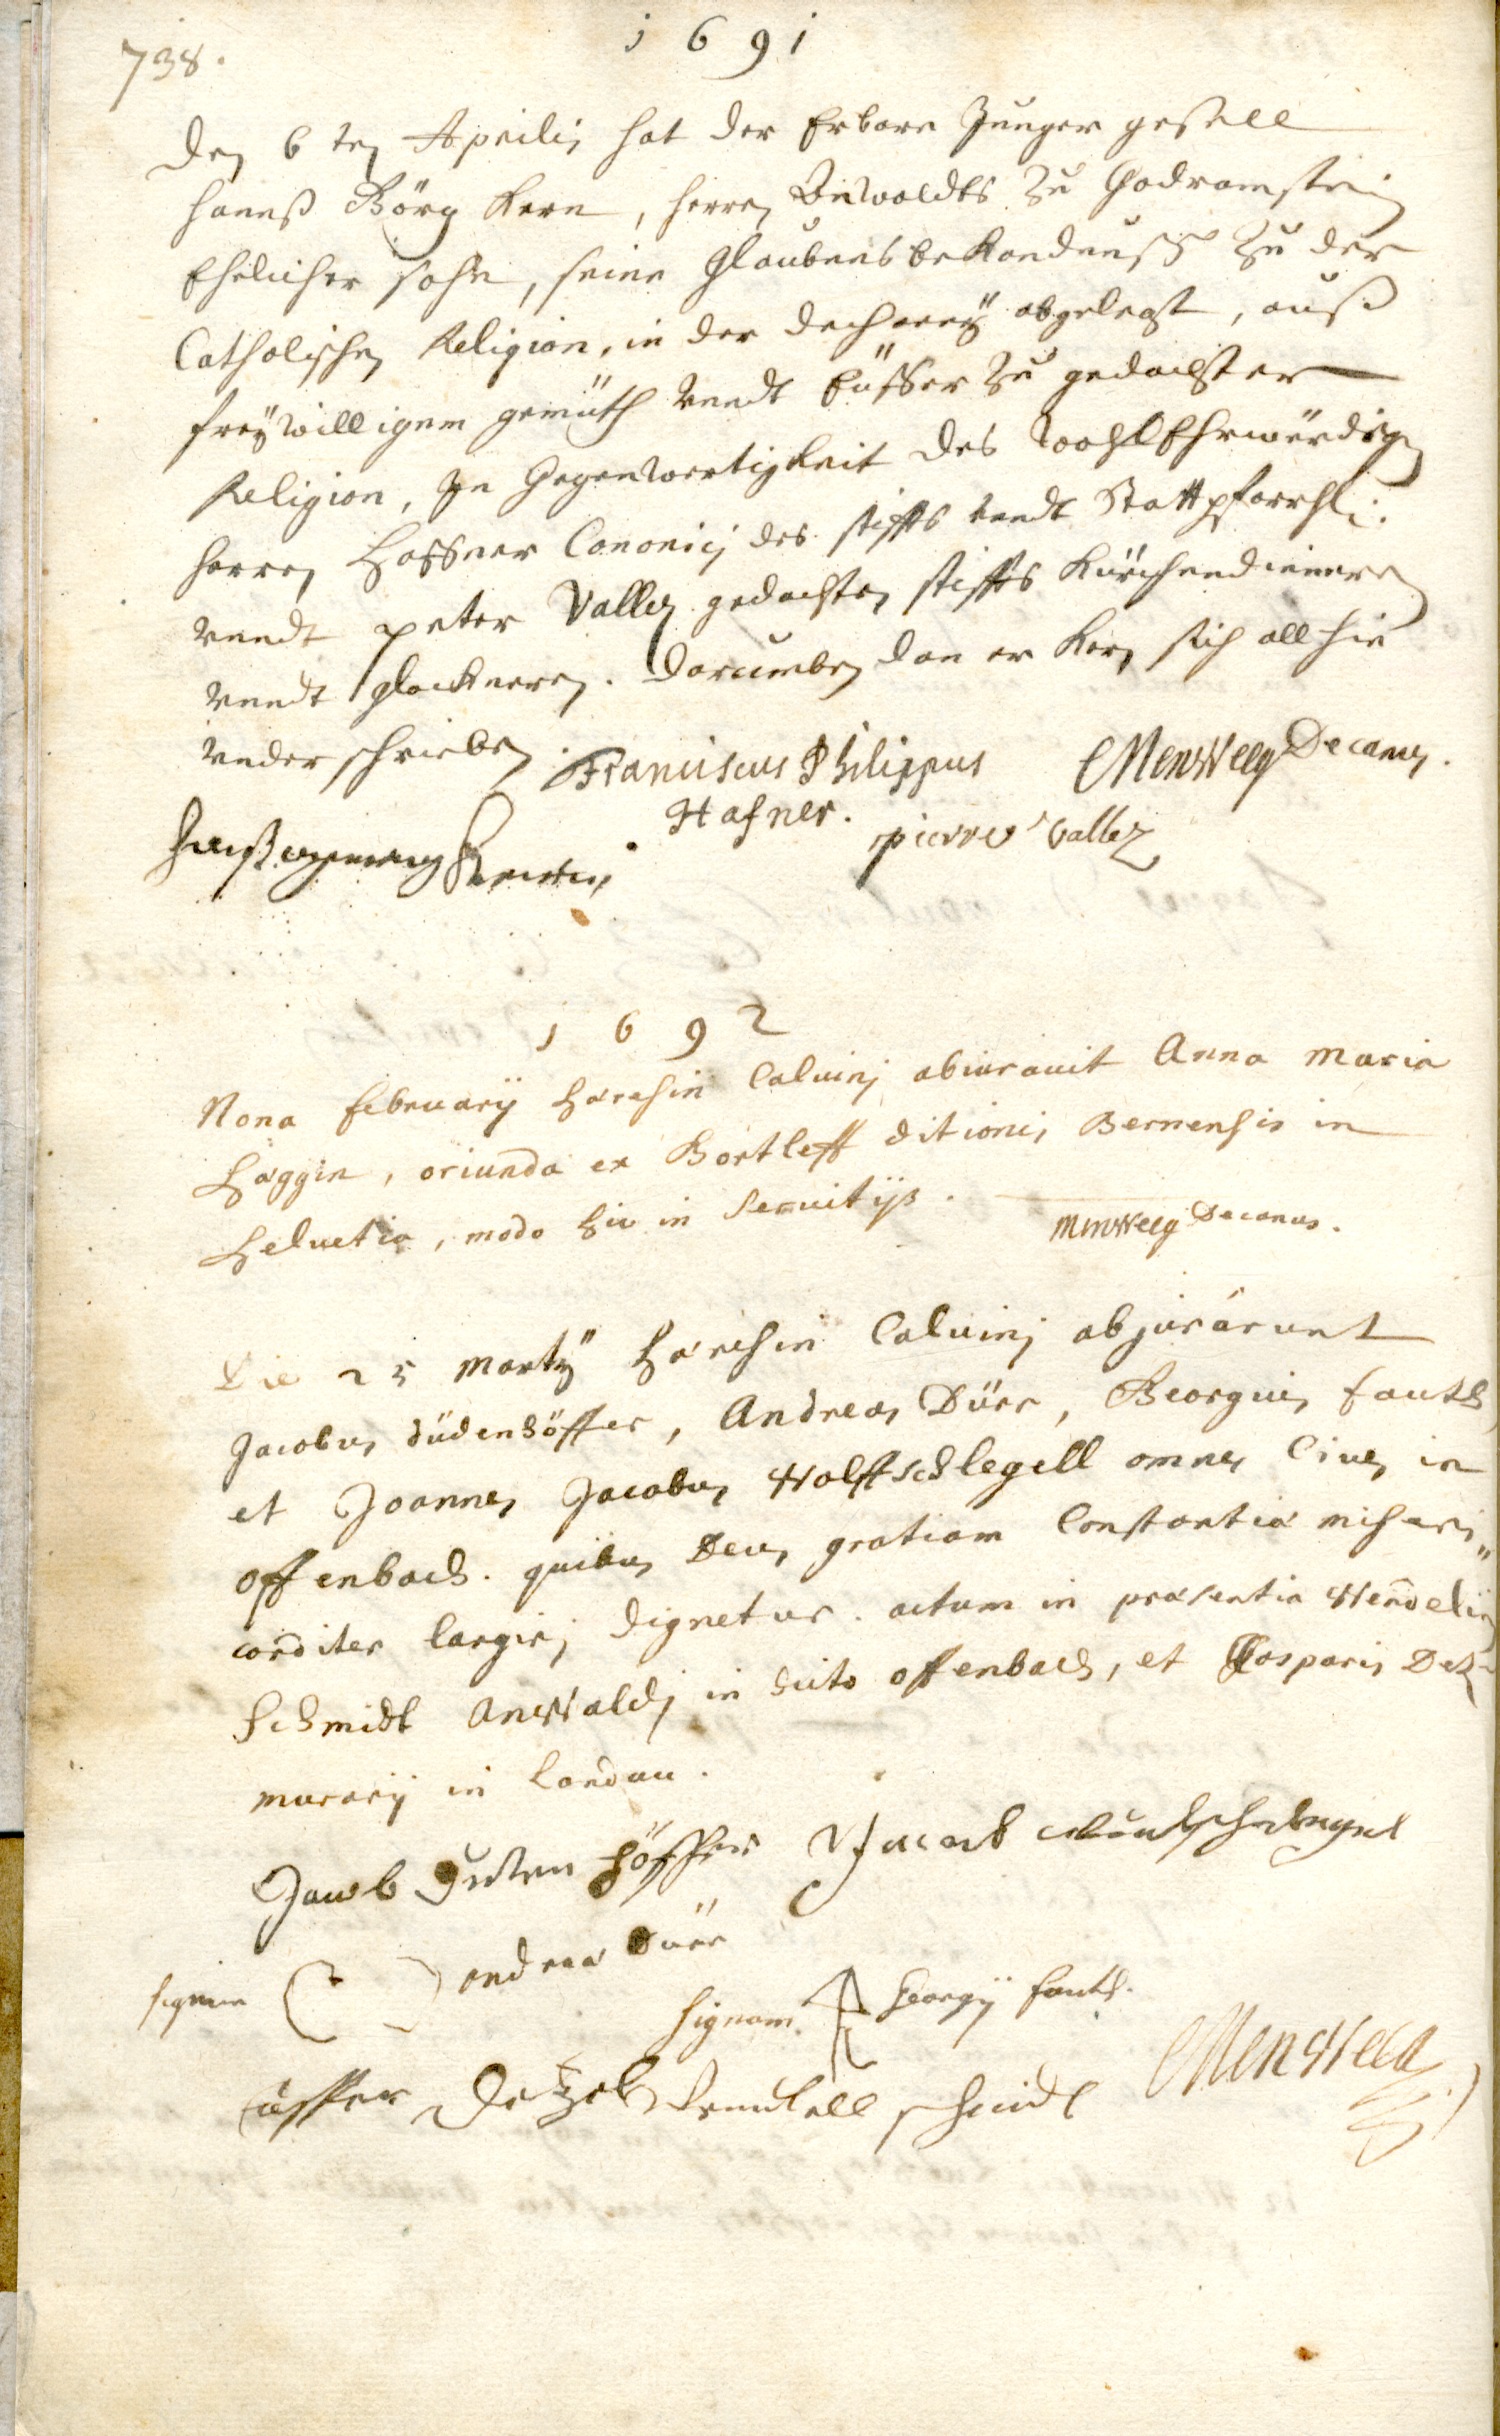 738.
1691
Den 6 ten Aprilis hat der Erbare Junger gesell
Hanß Görg Kern, herren Anwaldts zu Godramstein
Ehelicher sohn, seine Glaubensbekandnuß zu der
Catholischen Religion, in der dechaney abgelegt, auß
freÿwilligem gemüth vnndt Eüffer zu gedachter
Religion, In Gegenwertigkeit des WohlEhrwürdigen
herren Haffner Canonici des stiffts vnndt Stattpfarrh:
vnndt peter Vallez gedachten stiffts Kürchendieneren
vnndt glockneren. darumben dan er Kern sich allhie
vnderschrieben.
Franciscus Philippus Menweeg Decanus.
Hafner. pierre vallez
1692
Nona february hæresin Calvinj abiuravit Anna Maria
Häggin, oriunda ex Bortleff ditionis Bernensis in
Helvetia, modo hic in servitijs.
Menweeg Decanus.
Die 25 Martÿ hæresin Calvinj abjurárunt
Jacobus düdenhöffer, Andreas Dürr, Georgius fauth,
et Joannes Jacobus Wolffschlegell omnes Cives in
offenbach. quibus Deus gratiam Constantiæ miseri"
corditer largirj dignetur. actum in præsentia Wendelin
Schmidt anwaldj in dicto offenbach, et Casparis Detz-
murarij in Landau.
Jacob duden höffer Jacob
signum andreas Dürr
signum Georgÿ fauth.
Casper Detzel Wendell schmidt Menweeg